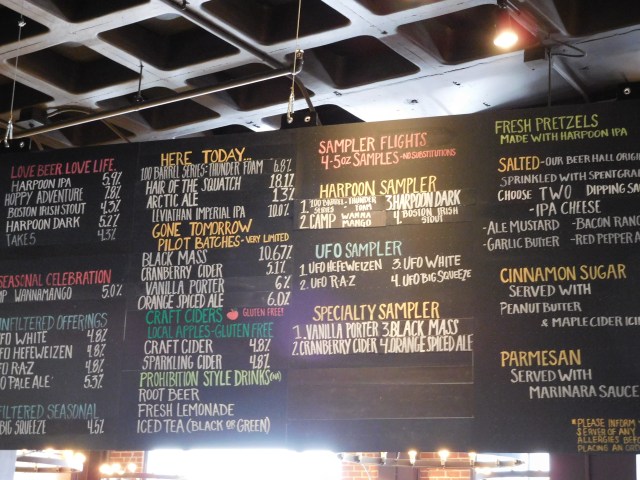 LOVE BEER LOVE LIFE.
HARPOON IPA 5.9%
HOPPY ADVENTURE
BOSTON IRISH STOUT 4.3%
HARPOON DARK
TAKE 5 4.3%
SEASONAL CELEBRATION
MP WANNAMANGO 5.0%
UNFILTERED OFFERINGS
FO WHITE 4.8%
FO HEFEWEIZEN 4.8%
O RA-Z 4.8%
O PALE ALE 5.3%
FILTERED SEASONAL
BIG SQUEEZE 4.5%
HERE TODAY...
100 BARREL SERIES: THUNDER FOAM 6.8%
HAIR OF THE SQUATCH
ARCTIC ALE
LEVIATHAN IMPERIAL IPA 10.0%
GONE TOMORROW
PILOT BATCHES - VERY LIMITED
BLACK MASS 10.67%
CRANBERRY CIDER 5.1%
VANILLA PORTER 6%
ORANGE SPICED ALE
CRAFT CIDERS GLUTEN FREE!
LOCAL APPLES - GLUTEN FREE
CRAFT CIDER 4.8%
SPARKLING CIDER 4.8%
PROHIBITION STYLE DRINKS
ROOT BEER
FRESH LEMONADE
ICED TEA (BLACK OR GREEN)
SAMPLER FLIGHTS
4-5oz SAMPLES - NO SUBSTITUTIONS
HARPOON SAMPLER
1. 100 BARREL SERIES - THUNDER FOAM 3. HARPOON DARK
2. CAMP WANNA MANGO 4. BOSTON IRISH STOUT
UFO SAMPLER
1. UFO HEFEWEIZEN 3. UFO WHITE
2. UFO RA-Z 4. UFO BIG SQUEEZE
SPECIALTY SAMPLER
1. VANILLA PORTER 3. BLACK MASS
2. CRANBERRY CIDER 4. ORANGE SPICED ALE
FRESH PRETZELS
MADE WITH HARPOON IPA
SALTED - OUR BEER HALL ORIGI
SPRINKLED WITH SPENT GRAI
CHOOSE TWO DIPPING SA
- IPA CHEESE
- ALE MUSTARD - BACON RAN
- GARLIC BUTTER - RED PEPPER A
CINNAMON SUGAR
SERVED WITH
PEANUT BUTTER
& MAPLE CIDER ICI
PARMESAN
SERVED WITH
MARINARA SAUCE
*PLEASE INFORM
SERVER OF ANY
ALLERGIES BEF
PLACING AN ORD